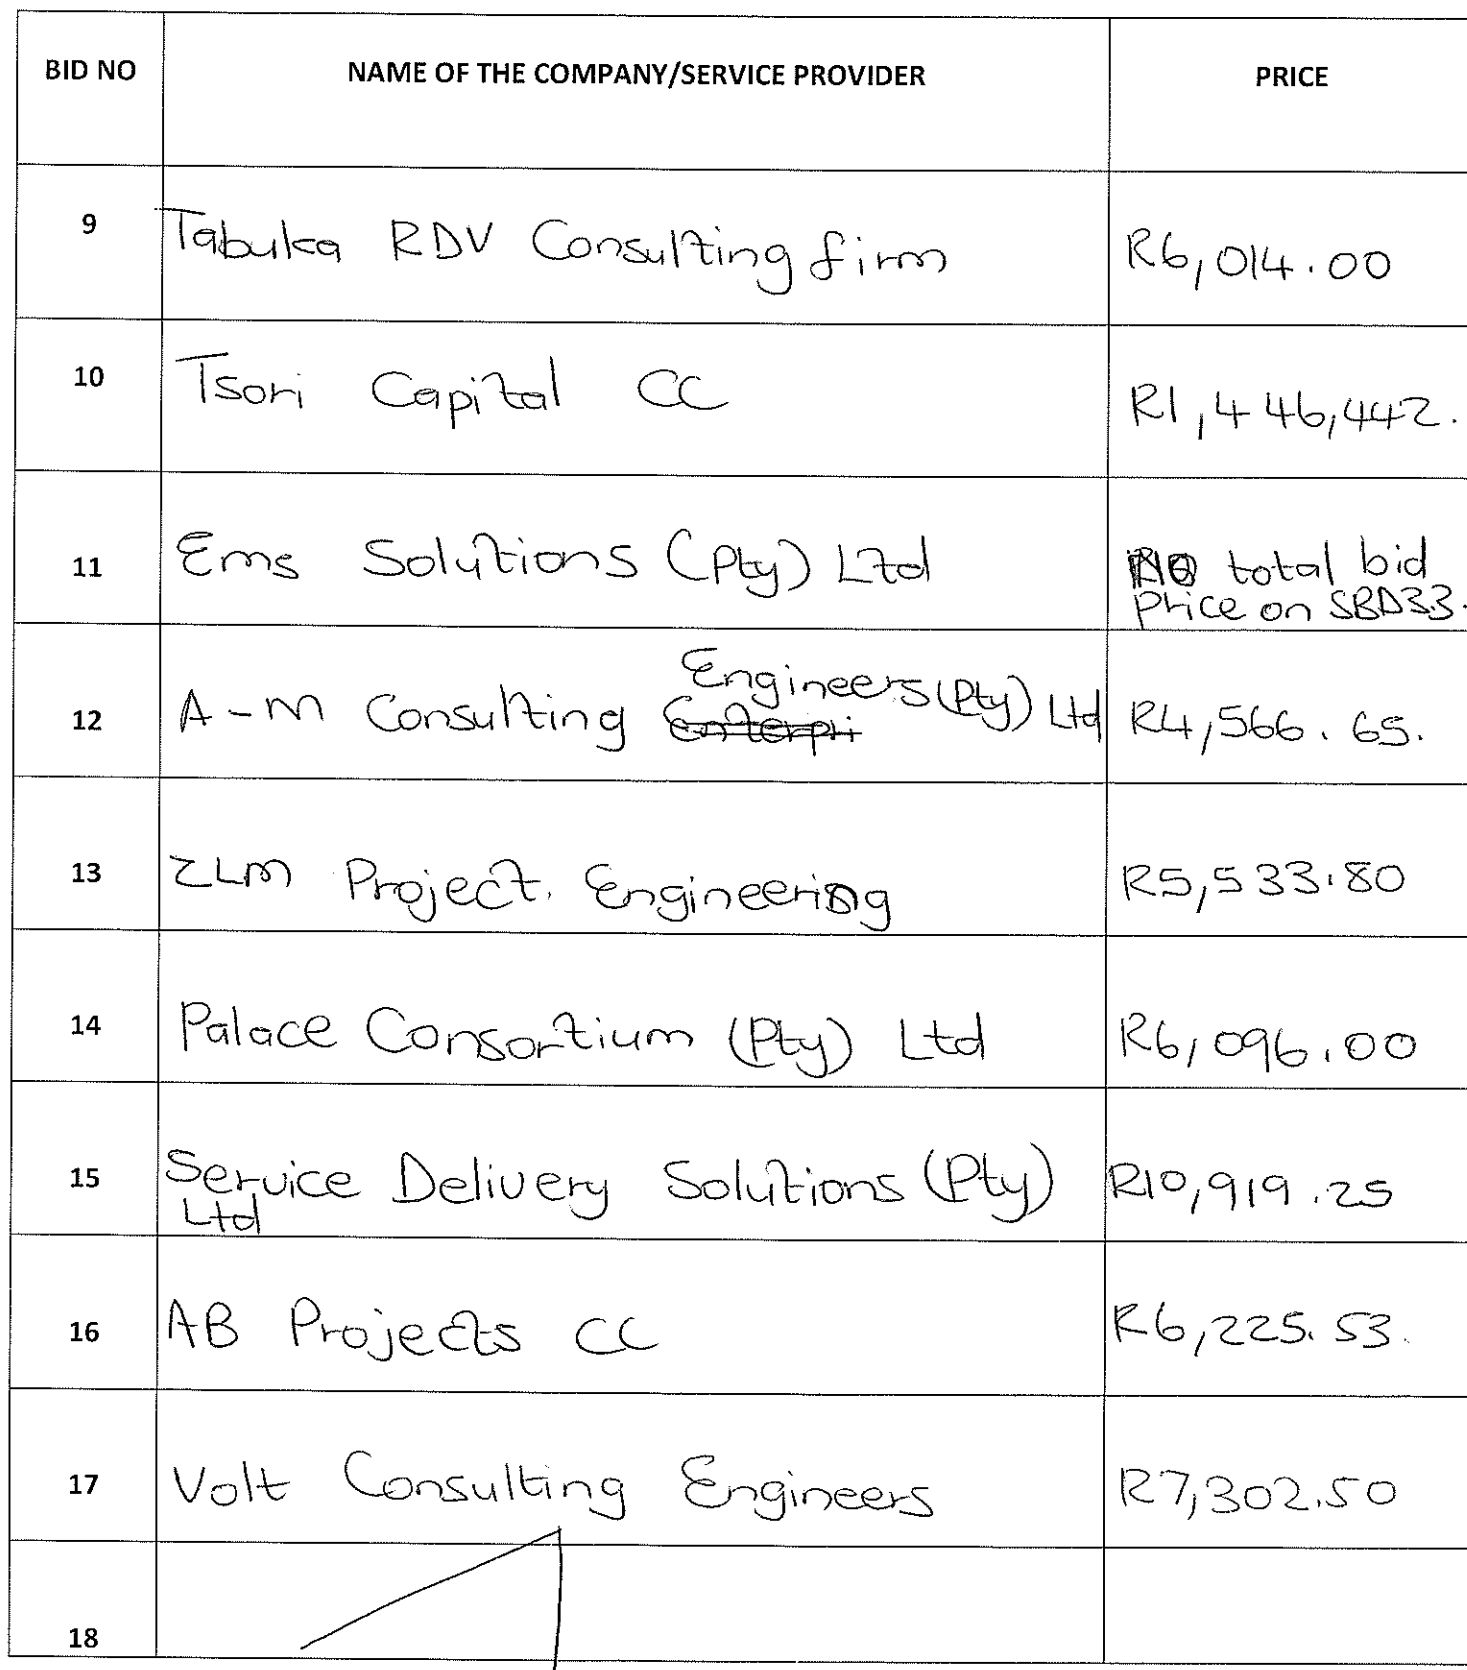 BID NO NAME OF THE COMPANY/SERVICE PROVIDER PRICE
9 Tabuka RDV Consulting firm R6,014.00
10 Tsori Capital CC R1,446,442.
11 Ems Solutions (Pty) Ltd No total bid
Price on SBD3.3.
Engineers (Pty) Ltd
12 A-M Consulting Enterpri R4,566.65.
13 ZLM Project. Engineering R5,533.80
14 Palace Consortium (Pty) Ltd R6,096.00
15 Service Delivery Solutions (Pty) R10,919.25
Ltd
16 AB Projects CC R6,225.53.
17 Volt Consulting Engineers R7,302.50
18